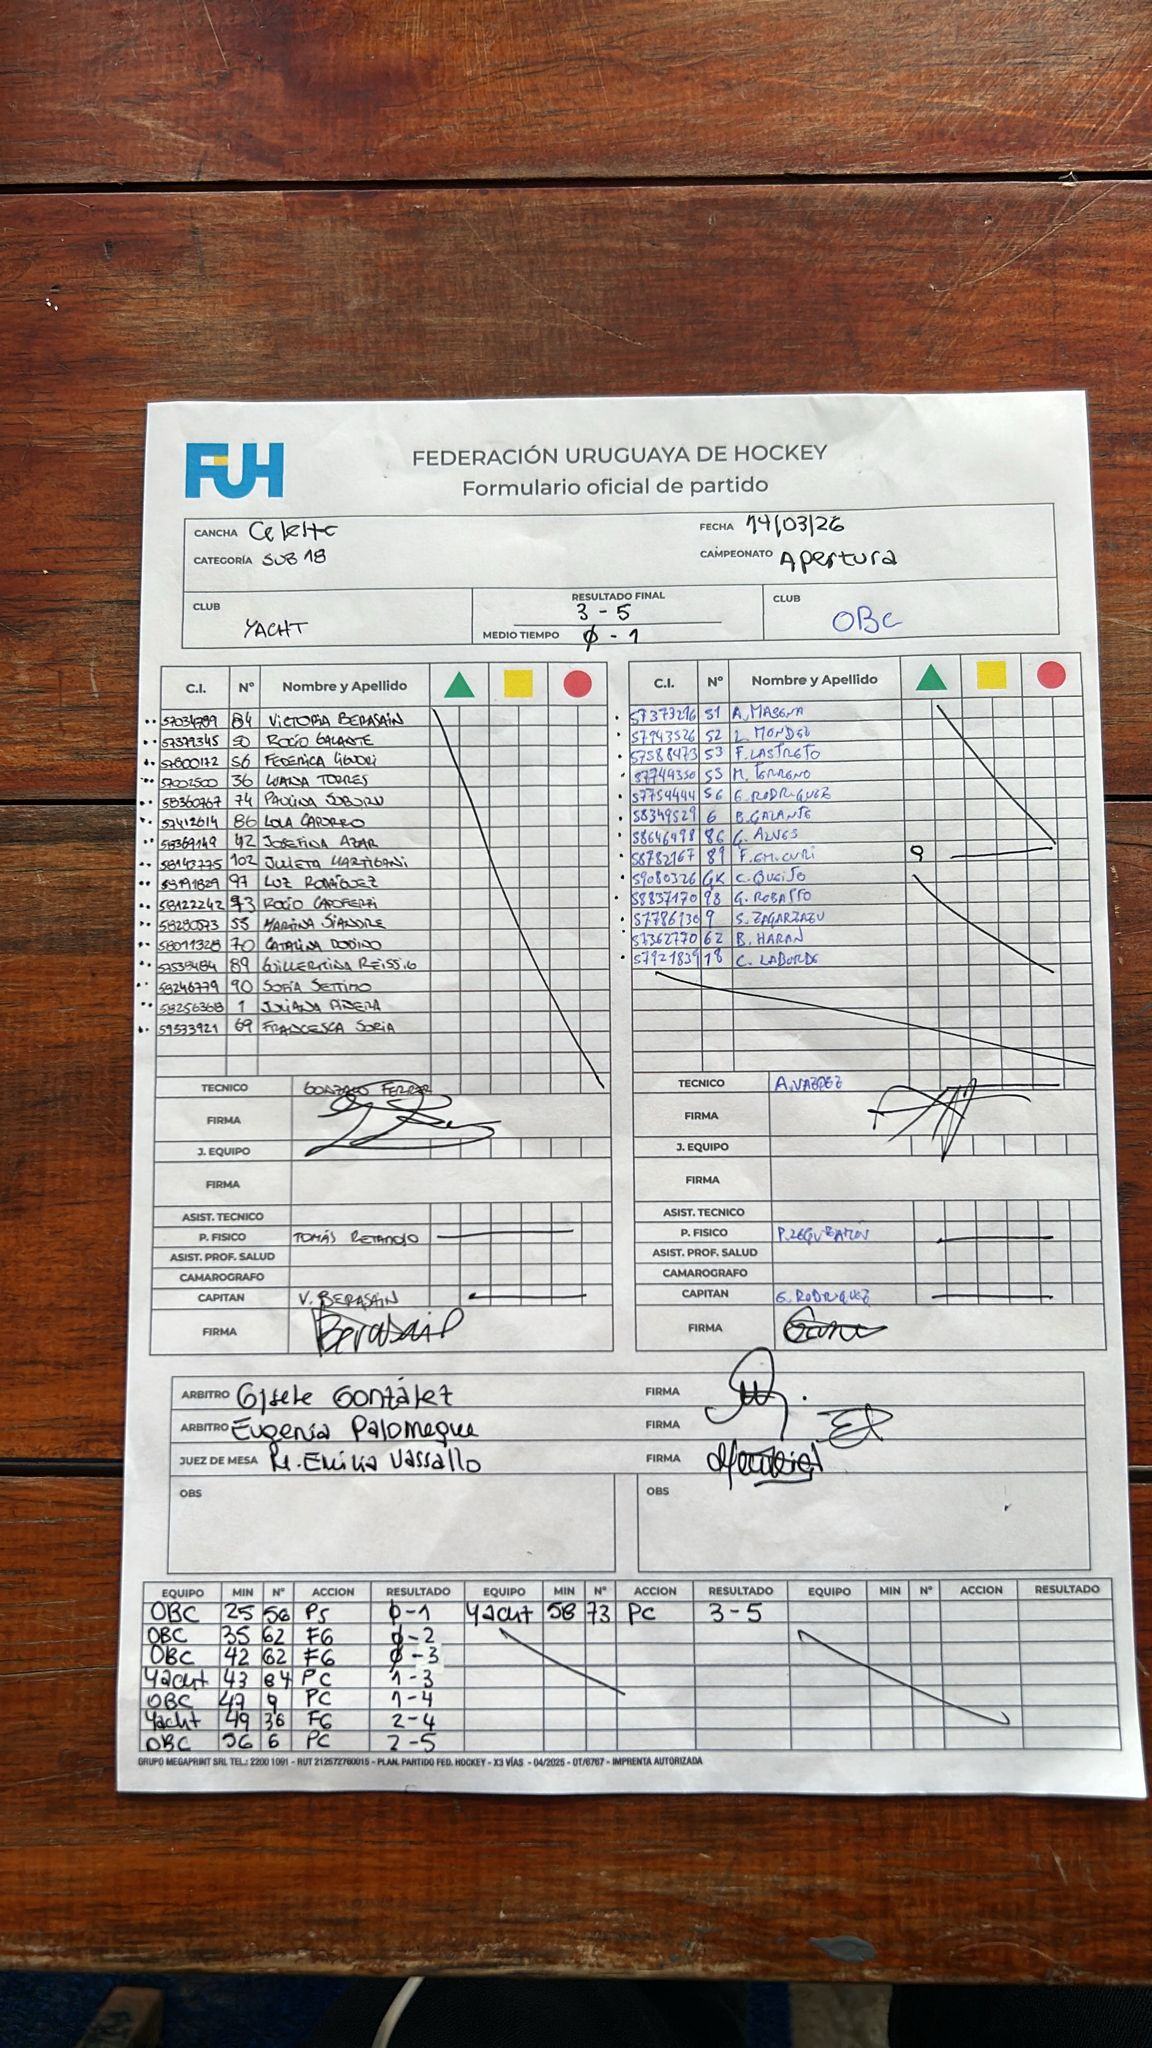 FUH
FEDERACIÓN URUGUAYA DE HOCKEY
Formulario oficial de partido
CANCHA Celeste FECHA 14/03/26
CATEGORÍA SUB 18 CAMPEONATO Apertura
CLUB YACHT RESULTADO FINAL 3 - 5 CLUB OBC
MEDIO TIEMPO 0 - 1
C.I. Nº Nombre y Apellido
84 VICTORIA BERASAIN
57379345 50 ROCÍO GALANTE
56 FEDERICA
57002500 36 TORRES
58360767 74 PAULINA
57412614 86 LOLA CAPURRO
58369149 42 JOSEFINA AZAR
58143775 102 JULIETA MARTIGANI
97 LUZ RODRÍGUEZ
58122242 93 ROCÍO
MARTINA
58011328 70 CATALINA
57539484 89 GUILLERMINA REISSIG
58246779 90 SOFÍA SETTIMO
58256368 1 JULIANA
59533921 69 FRANCESCA SORIA
TECNICO GONZALO FERRER
FIRMA
J. EQUIPO
FIRMA
ASIST. TECNICO
P. FISICO TOMÁS
ASIST. PROF. SALUD
CAMAROGRAFO
CAPITAN V. BERASAIN
FIRMA Berasain
C.I. Nº Nombre y Apellido
57373216 51 A. MASENA
57943526 52 L. MONDEL
57588473 53 F. LASTRETO
57749350 55 M. TERRENO
57754444 56 G. RODRIGUEZ
58349529 6 B. GALANTE
58646498 86 G. ALVES
58782167 89 F. 9
59080326 GK C. QUEIJO
58837170 98 G. ROBATTO
57786130 9 S. ZAGARZAZU
57362770 62 B. HARAN
57921839 18 C. LABORDE
TECNICO A. VAZQEZ
FIRMA
J. EQUIPO
FIRMA
ASIST. TECNICO
P. FISICO
ASIST. PROF. SALUD
CAMAROGRAFO
CAPITAN G. RODRIQUEZ
FIRMA
ARBITRO Gisele González FIRMA
ARBITRO Eugenia Palomeque FIRMA
JUEZ DE MESA M. Emilia Vassallo FIRMA
OBS OBS
EQUIPO MIN Nº ACCION RESULTADO EQUIPO MIN Nº ACCION RESULTADO EQUIPO MIN Nº ACCION RESULTADO
OBC 25 56 PS 0-1 Yacht 58 73 PC 3-5
OBC 35 62 FG 0-2
OBC 42 62 FG 0-3
Yacht 43 84 PC 1-3
OBC 47 9 PC 1-4
Yacht 49 36 FG 2-4
OBC 56 6 PC 2-5
GRUPO MEGAPRINT SRL TEL.: 2200 1091 - RUT 212572760015 - PLAN. PARTIDO FED. HOCKEY - X3 VÍAS - 04/2025 - OT/6767 - IMPRENTA AUTORIZADA